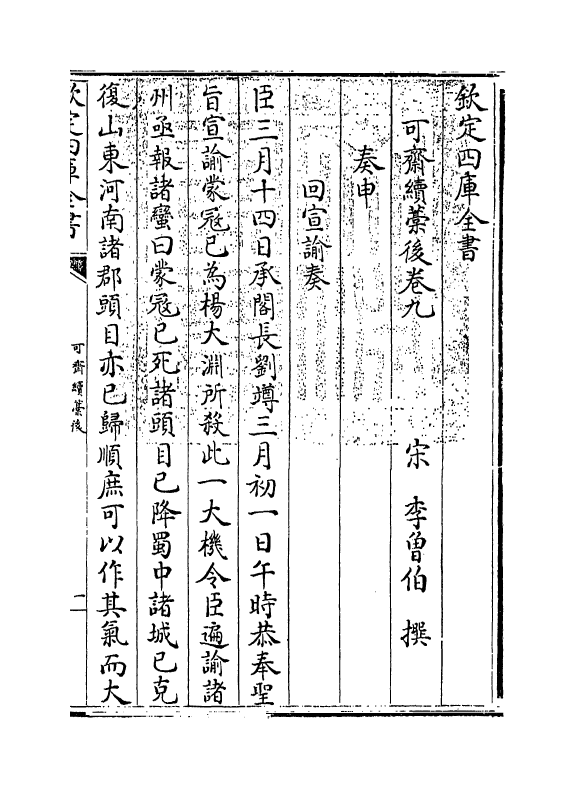 欽定四庫全書
可齋續藁後卷九
宋　李曾伯　撰
奏申
回宣諭奏
臣三月十四日承閤長劉𡐋三月初一日午時恭奉聖
旨宣諭蒙冦已為楊大淵所殺此一大機令臣遍諭諸
州亟報諸蠻曰蒙冦已死諸頭目已降蜀中諸城已克
復山東河南諸郡頭目亦已歸順庶可以作其氣而大
欽定四庫全書
可齋續藁後